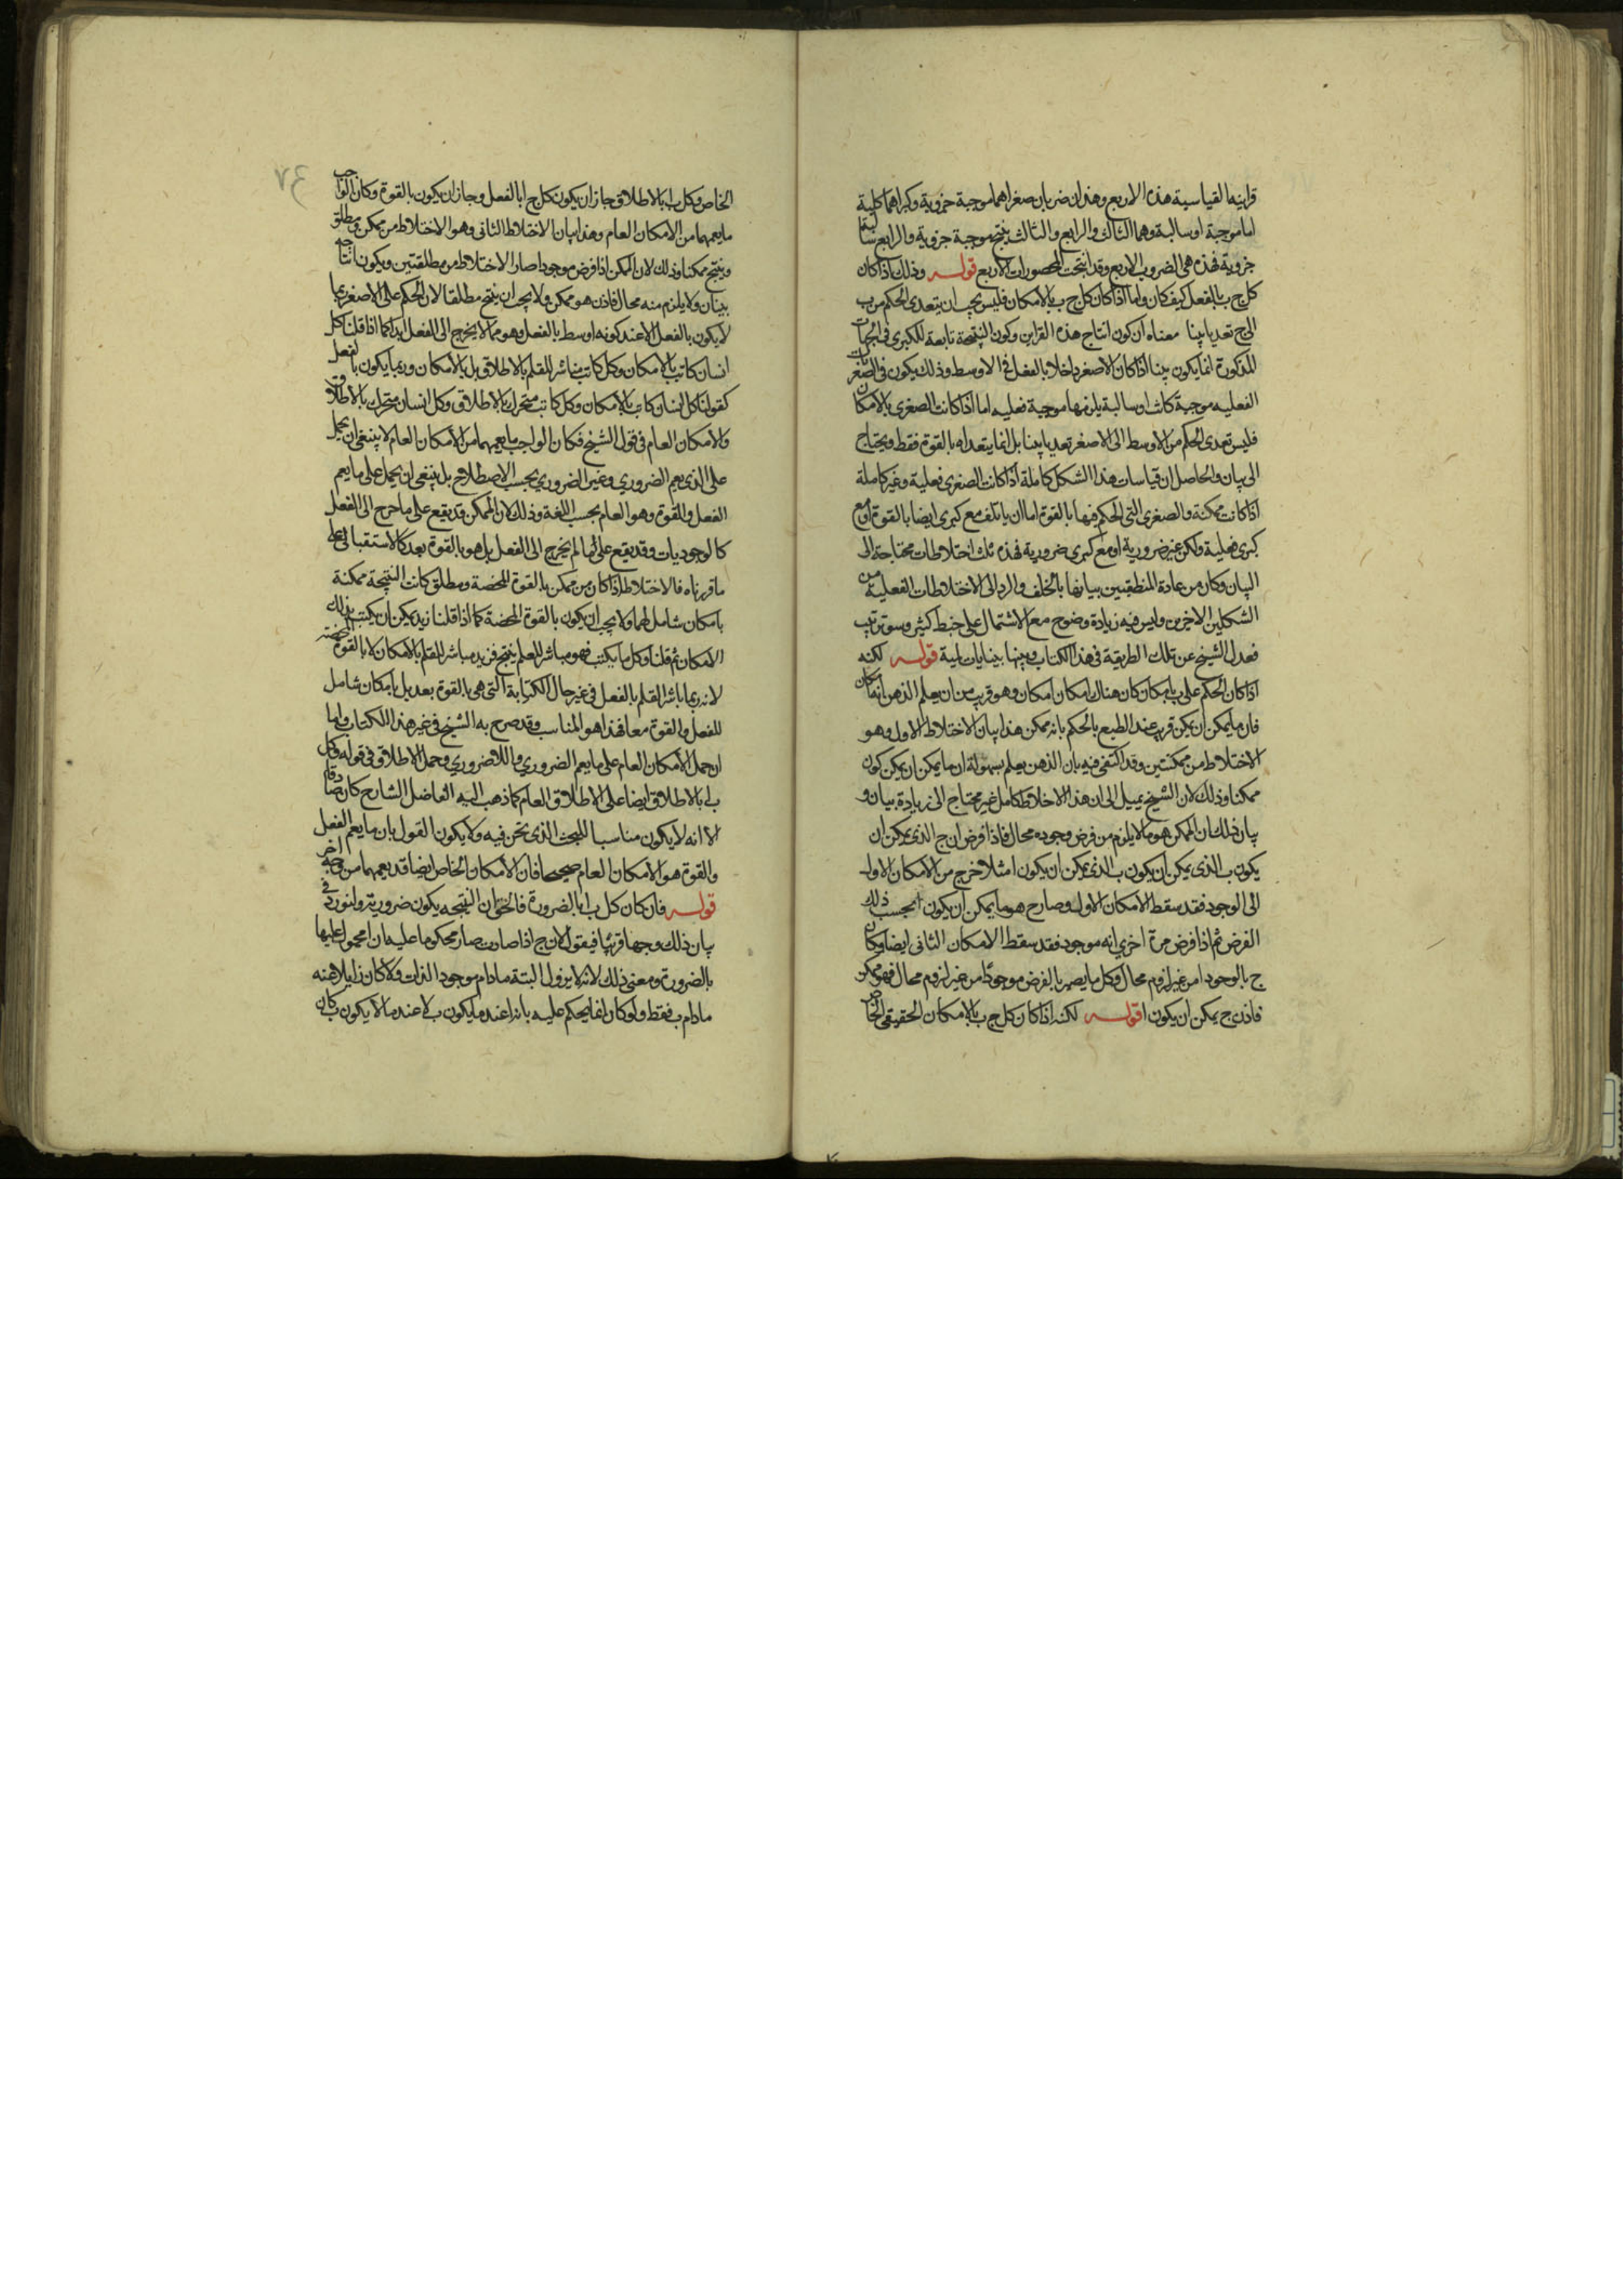 قراينها القياسية هذه الاربع وهذان ضربان صغراهما موجبة جزوية وكبراهما كلية
اما موجبة او سالبة وهما الثالث والرابع والثالث ينتج موجبة جزوية والرابع سالبة
جزوية فهذه هى الضروب الاربع وقد انتجت المحصورات الاربع قوله وذلك اذا كان
كل ج ب بالفعل كيف كان واما اذا كان كل ج ب بالامكان فليس يجب ان يتعدى الحكم من ب
الى ج تعديا بينا معناه ان كون انتاج هذه القراين وكون النتيجة تابعة للكبرى فى الجهات
المذكورة انما يكون بينا اذا كان الاصغر داخلا بالفعل فى الاوسط وذلك يكون فى الصغريات
الفعليه موجبة كانت او سالبة يلزمها موجبة فعليه اما اذا كانت الصغرى بالامكان
فليس تعدى الحكم من الاوسط الى الاصغر تعديا بينا بل انما يتعداه بالقوة فقط ويحتاج
الى بيان والحاصل ان قياسات هذا الشكل كاملة اذا كانت الصغرى فعلية وغير كاملة
اذا كانت ممكنة والصغرى التى الحكم فيها بالقوة اما ان ياتلف مع كبرى ايضا بالقوة او مع
كبرى فعلية ولكن غير ضرورية او مع كبرى ضرورية فهذه ثلث اختلاطات محتاجة الى
البيان وكان من عادة المنطقيين بيانها بالخلف والرد الى الاختلاطات الفعلية من
الشكلين الاخيرين وليس فيه زيادة وضوح مع الاشتمال على خبط كثير وسو ترتيب
فعدل الشيخ عن تلك الطريقة فى هذا الكتاب وبينها ببيانات لمية قوله لكنه
اذا كان الحكم على ب بامكان كان هناك امكان امكان وهو قريب من ان يعلم الذهن انه امكان
فان ما يمكن ان يمكن قريب عند الطبع بالحكم بانه ممكن هذا بيان الاختلاط الاول وهو
الاختلاط من ممكنتين وقد اكتفى فيه بان الذهن يعلم بسهولة ان ما يمكن ان يمكن كون
ممكنا وذلك لان الشيخ يميل الى ان هذا الاختلاط كامل غير محتاج الى زيادة بيان و
بيان ذلك ان الممكن هو ما لا يلزم من فرض وجوده محال فاذا فرض ان ج الذى يمكن ان
يكون ب الذى يمكن ان يكون ب الذى يمكن ان يكون ا مثلا خرج من الامكان الاول
الى الوجود فقد سقط الامكان الاول وصار ج هو ما يمكن ان يكون ا بحسب ذلك
الفرض ثم اذا فرض مرة اخرى انه موجود فقد سقط الامكان الثانى ايضا وكان
ج ا بالوجود من غير لزوم محال وكل ما يصير بالفرض موجودا من غير لزوم محال فهو ممكن
فاذن ج يمكن ان يكون ا قوله لكنه اذا كان كل ج ب بالامكان الحقيقى الخاص
٧٤
الخاص وكل ب ا بالاطلاق جاز ان يكون كل ج ا بالفعل وجاز ان يكون بالقوة وكان الواجب
ما يعمهما من الامكان العام وهذا بيان الاختلاط الثانى وهو الاختلاط من ممكن ومطلق
وينتج ممكنا وذلك لان الممكن اذا فرض موجودا صار الاختلاط من مطلقتين ويكون انتاجه
بينا ولا يلزم منه محال فاذن هو ممكن ولا يجب ان ينتج مطلقا لان الحكم على الاصغر ربما
لا يكون بالفعل الا عند كونه اوسط بالفعل وهو مما لا يخرج الى الفعل ابدا كما اذا قلنا كل
انسان كاتب بالامكان وكل كاتب مباشر للقلم بالاطلاق بل بالامكان وربما يكون بالفعل
كقولنا كل انسان كاتب بالامكان وكل كاتب متحرك بالاطلاق وكل انسان متحرك بالاطلاق
والامكان العام فى قول الشيخ فكان الواجب ما يعمهما من الامكان العام لا ينبغى ان يحمل
على الذى يعم الضرورى وغير الضرورى بحسب الاصطلاح بل ينبغى ان يحمل على ما يعم
الفعل والقوة وهو العام بحسب اللغة وذلك لان الممكن قد يقع على ما خرج الى الفعل
كالوجوديات وقد يقع على ما لم يخرج الى الفعل بل هو بالقوة بعد كالاستقبالى على
ما قررناه فالاختلاط اذا كان من ممكن بالقوة المحضة ومطلق كانت النتيجة ممكنة
بامكان شامل لهما ولا يجب ان يكون بالقوة المحضة كما اذا قلنا زيد يمكن ان يكتب بذلك
الامكان ثم قلنا وكل ما يكتب فهو مباشر للقلم ينتج فزيد مباشر للقلم بالامكان لا بالقوة المحضة
لانه ربما باشر القلم بالفعل فى غير حال الكتابة التى هى بالقوة بعد بل بامكان شامل
للفعل والقوة معا فهذا هو المناسب وقد صرح به الشيخ فى غير هذا الكتاب واما
ان حمل الامكان العام على ما يعم الضرورى واللاضرورى وحمل الاطلاق فى قوله وكل
ب ا بالاطلاق ايضا على الاطلاق العام كما ذهب اليه الفاضل الشارح كان صادقا
الا انه لا يكون مناسبا للبحث الذى نحن فيه ولا يكون القول بان ما يعم الفعل
والقوة هو الامكان العام صحيحا فان الامكان الخاص ايضا قد يعمهما من وجه اخر
قوله فان كان كل ب ا بالضرورة فالحق ان النتيجه يكون ضرورية ولنورد فى
بيان ذلك وجها قريبا فيقول لان ج اذا صارت ب صار محكوما عليه ان ا محمول عليها
بالضرورة ومعنى ذلك لانه لا يزول البتة مادام موجود الذات ولا كان زايلا عنه
مادام ب فقط ولو كان انما يحكم عليه بانه ا عند ما يكون ب لا عند ما لا يكون ب كان